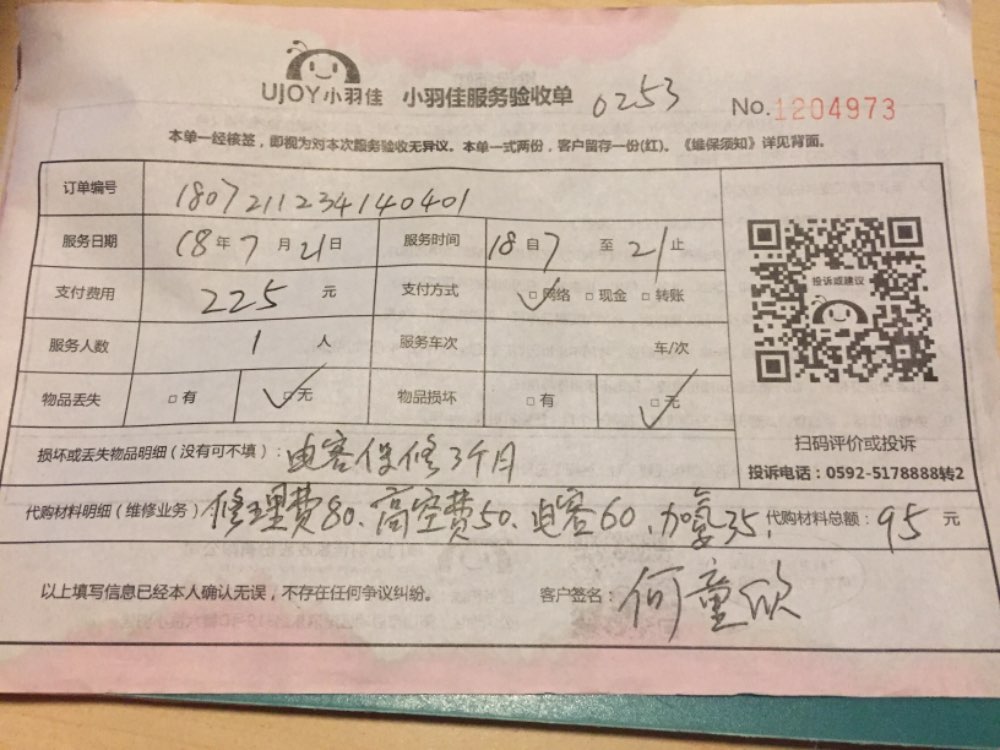 UJOY小羽佳 小羽佳服务验收单 0253 No.1204973
本单一经核签，即视为对本次服务验收无异议。本单一式两份，客户留存一份(红)。《维保须知》详见背面。
订单编号 180721123414​0401
服务日期 18年7月21日 服务时间 18自7至21止
支付费用 225 元 支付方式 ☑网络 □现金 □转账
服务人数 1 人 服务车次 车/次
物品丢失 □有 ☑无 物品损坏 □有 ☑无
投诉或建议
扫码评价或投诉
投诉电话：0592-5178888转2
损坏或丢失物品明细（没有可不填）：电容保修3个月
代购材料明细（维修业务）：修理费80、高空费50、电容60、加氟35 代购材料总额：95 元
以上填写信息已经本人确认无误，不存在任何争议纠纷。 客户签名：何童欣